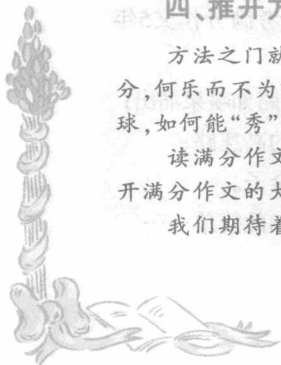 四、推开方
方法之门就
分,何乐而不为
球,如何能“秀”
读满分作文
开满分作文的大
我们期待着